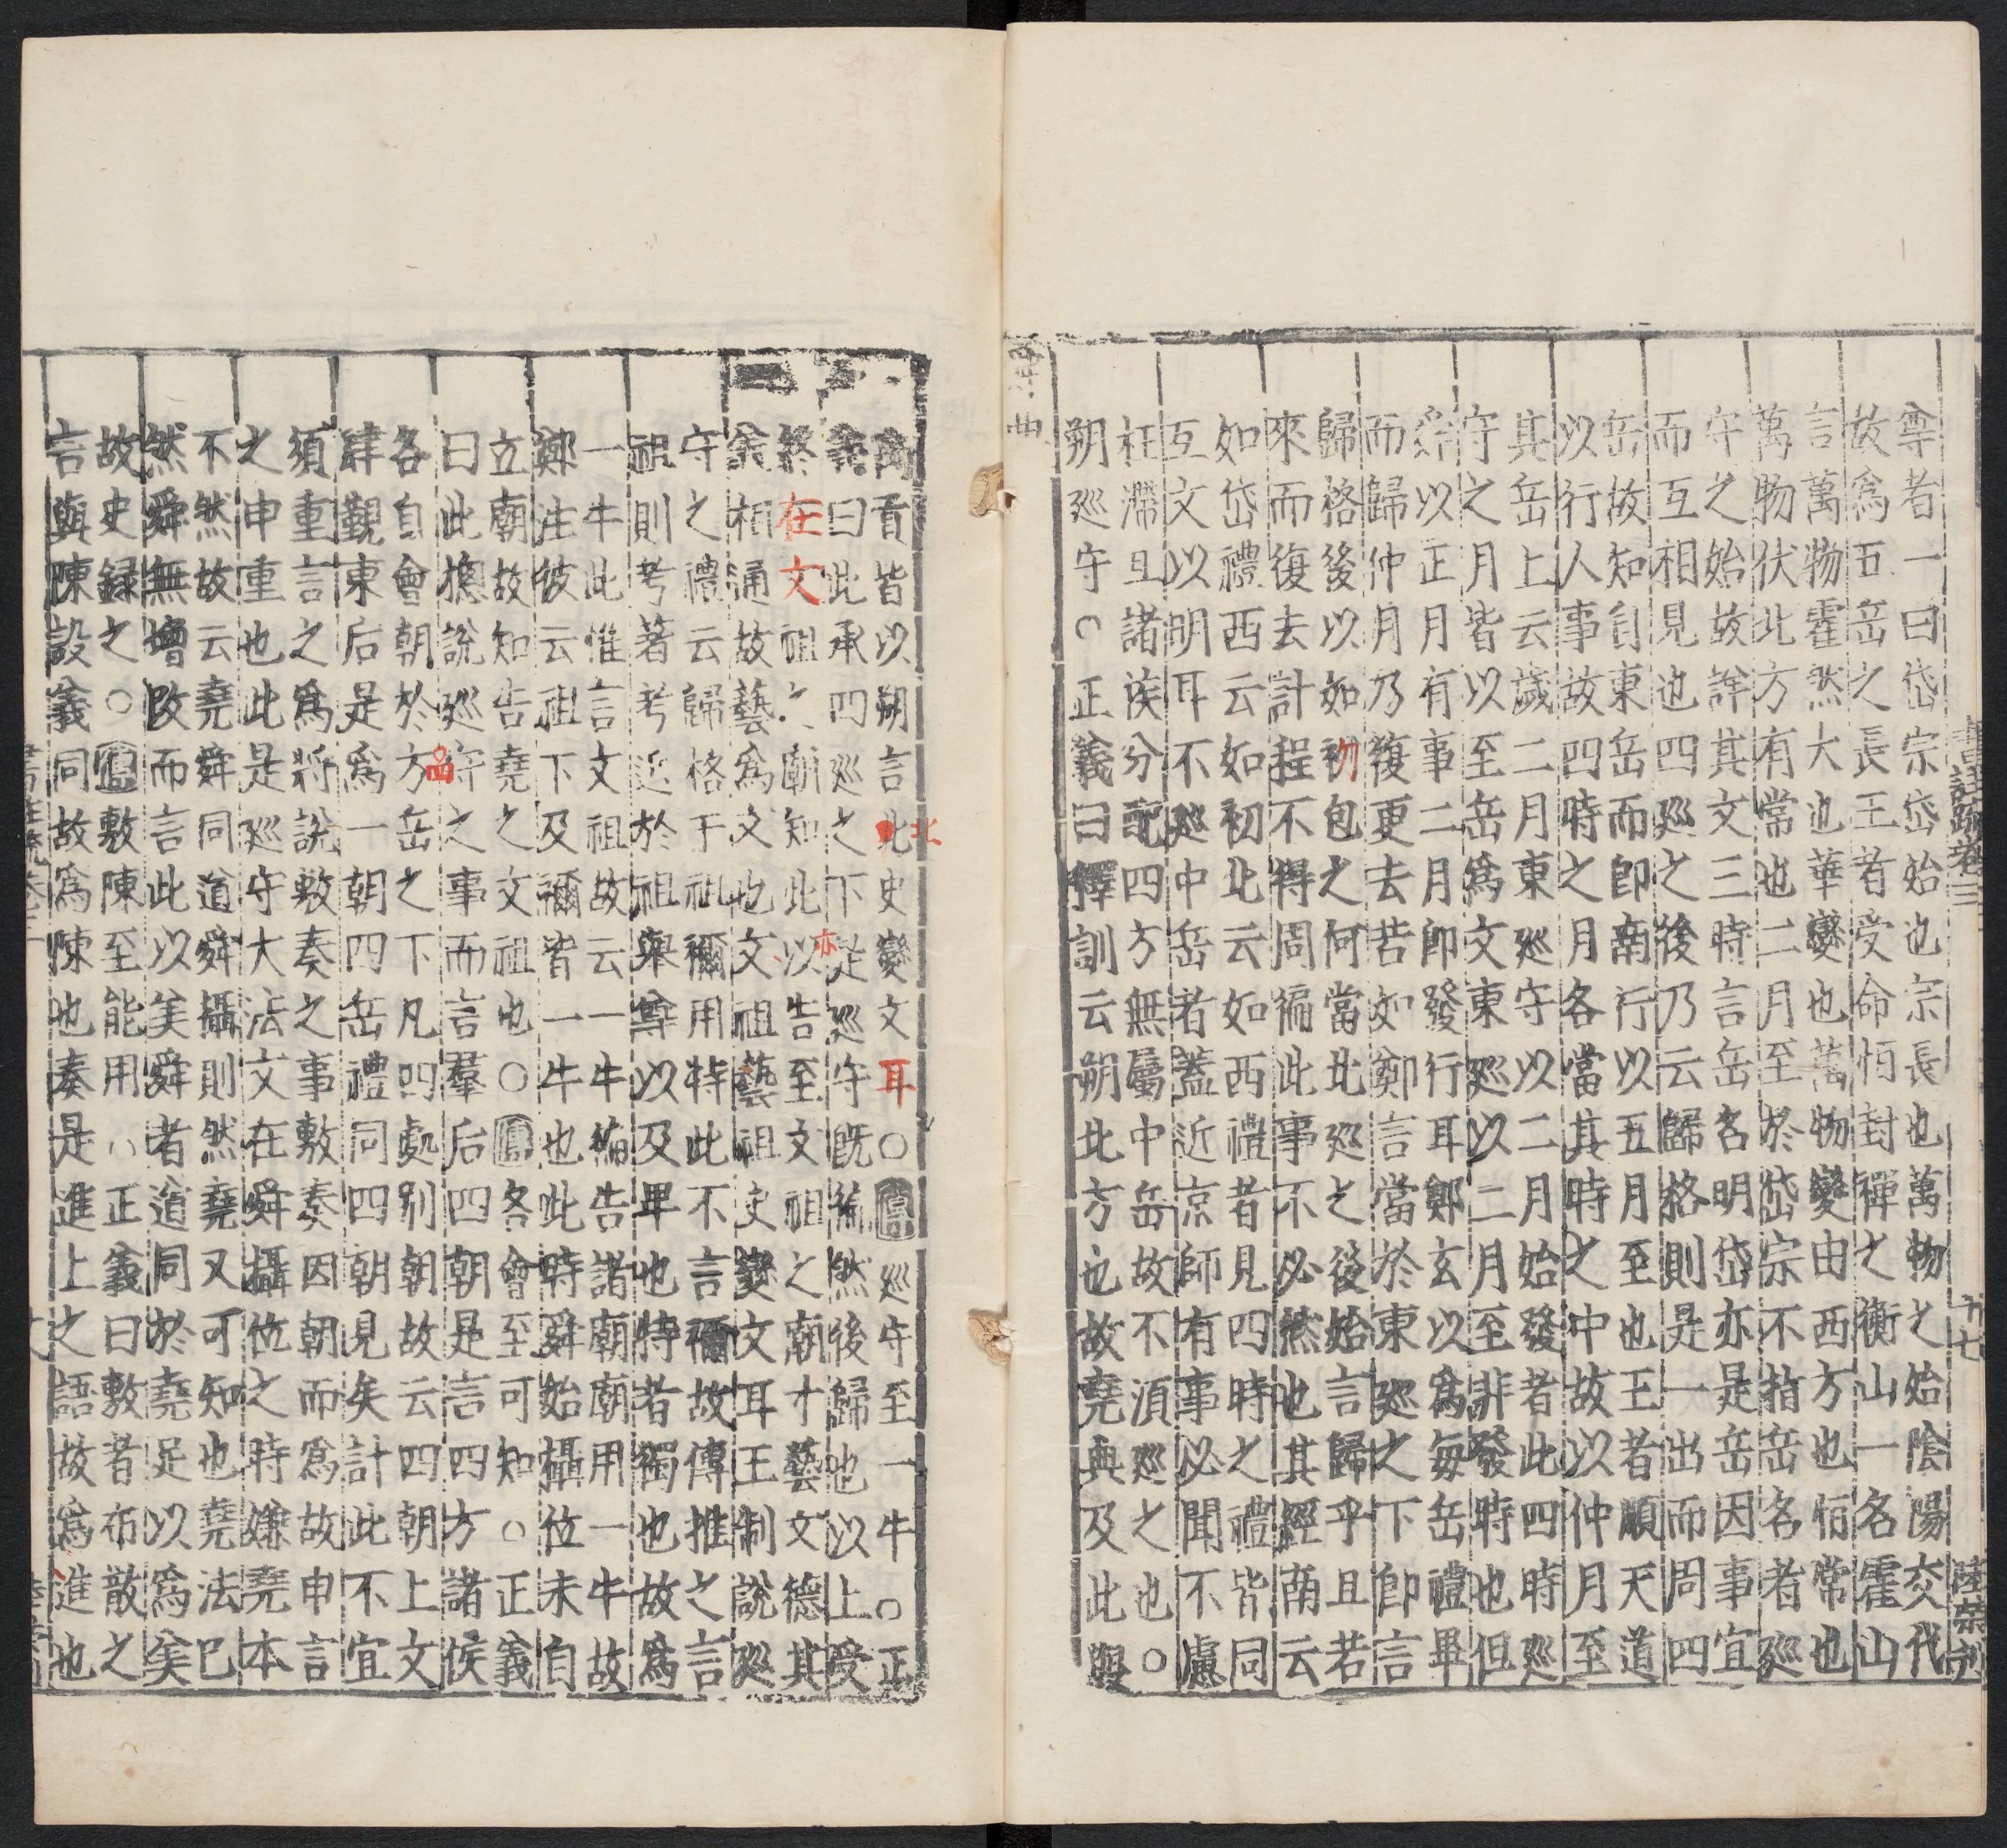 書註疏卷三
十七
陸榮刻
尊者一曰岱宗岱始也宗長也萬物之始陰陽交代
故爲五岳之長王者受命恒封禪之衡山一名霍山
言萬物霍然大也華變也萬物變由西方也恒常也
萬物伏北方有常也二月至於岱宗不指岳名者巡
守之始故詳其文三時言岳名明岱亦是岳因事宜
而互相見也四巡之後乃云歸格則是一出而周四
岳故知自東岳而即南行以五月至也王者順天道
以行人事故四時之月各當其時之中故以仲月至
其岳上云歲二月東巡守以二月始發者此四時巡
守之月皆以至岳爲文東巡以二月至非發時也但
舜以正月有事二月即發行耳鄭玄以爲每岳禮畢
而歸仲月乃復更去若如鄭言當於東巡之下即言
歸格後以如初包之何當北巡之後始言歸乎且若
來而復去計程不得周徧此事不必然也其經南云
如岱禮西云如初北云如西禮者見四時之禮皆同
互文以明耳不巡中岳者蓋近京師有事必聞不慮
枉滯且諸侯分配四方無屬中岳故不須巡之也○
朔巡守○正義曰釋訓云朔北方也故堯典及此與
禹貢皆以朔言北史變文耳○傳巡守至一牛○正
義曰此承四巡之下是巡守既徧然後歸也以上受
終在文祖六廟知此以告至文祖之廟才藝文德其
義相通故藝爲文也文祖藝祖史變文耳王制說巡
守之禮云歸格于祖禰用特此不言禰故傳推之言
祖則考著考近於祖舉尊以及卑也特者獨也故爲
一牛此惟言文祖故云一牛徧告諸廟廟用一牛故
鄭注彼云祖下及禰皆一牛也此時舜始攝位未自
立廟故知告堯之文祖也○傳各會至可知○正義
曰此揔說巡守之事而言羣后四朝是言四方諸侯
各自會朝於方岳之下凡四處別朝故云四朝上文
肆覲東后是爲一朝四岳禮同四朝見矣計此不宜
須重言之爲將說敷奏之事敷奏因朝而爲故申言
之申重也此是巡守大法文在舜攝位之時嫌堯本
不然故云堯舜同道舜攝則然堯又可知也堯法已
然舜無增改而言此以美舜者道同於堯足以爲美
故史録之○傳敷陳至能用○正義曰敷者布散之
言與陳設義同故爲陳也奏是進上之語故爲進也